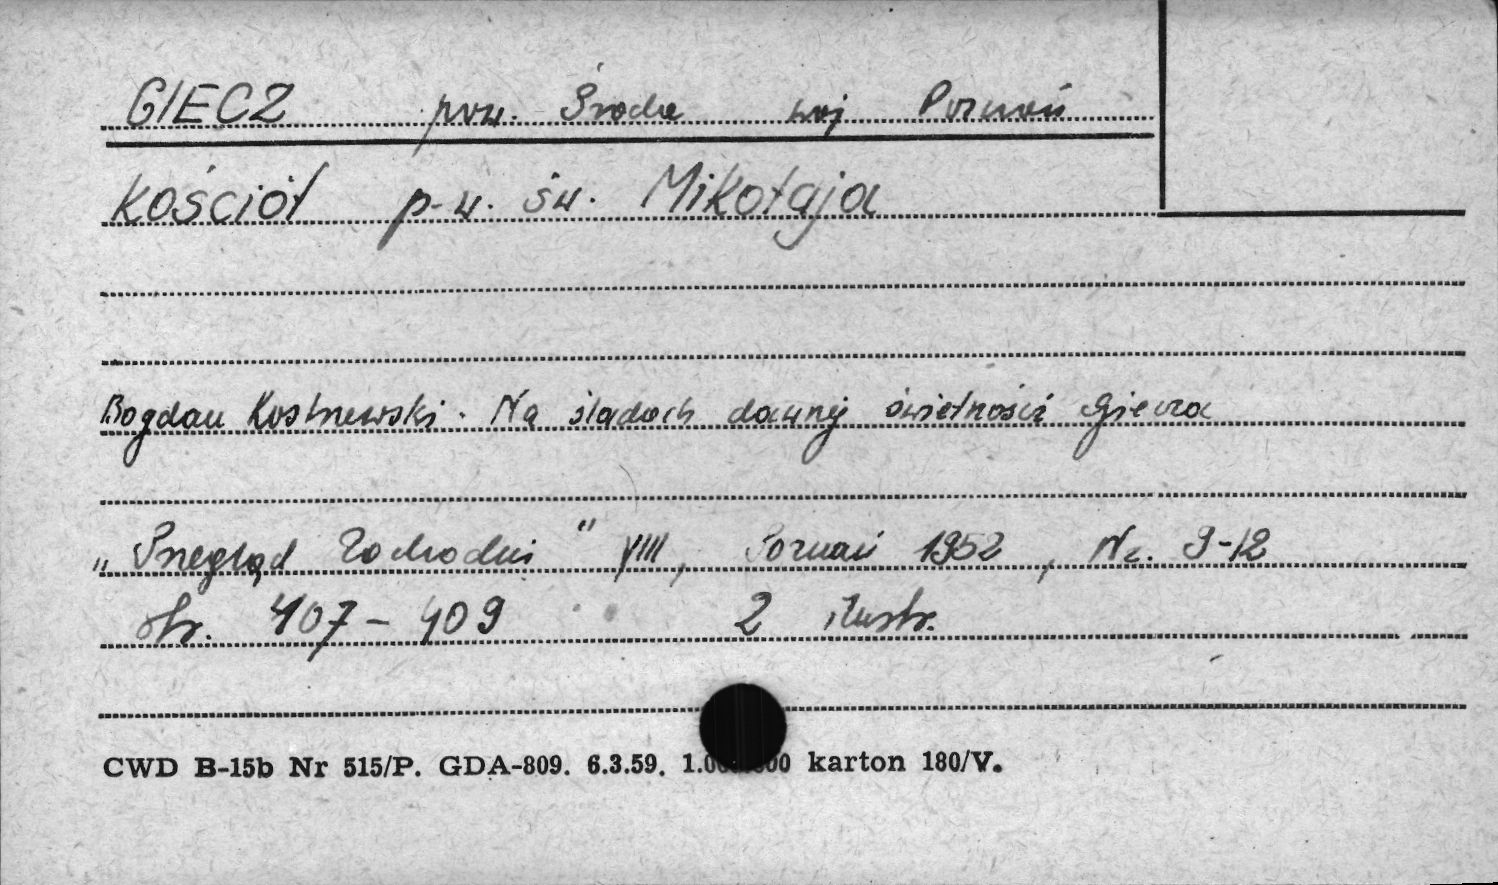 GIECZ pow. Środa woj Poznań
Kościół p-w. św. Mikołaja
Bogdan Kostrzewski. Na śladach dawnej świetności Giecza
„Przegląd Zachodni" VIII, Poznań 1952, Nr. 9-12
str. 407-409 2 ilustr.
CWD B-15b Nr 515/P. GDA-809. 6.3.59. karton 180/V.